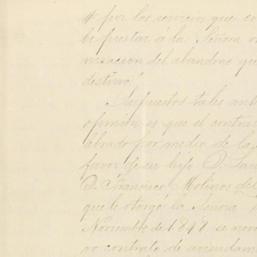 # por los servicios que co
be prestar a la Señora v
nizacion del abandono que
destino."
Supuestos tales ant
opinion es que el contra
lebrado por medio de la
favor de su hijo D. San
D. Francisco Molinos del
que le otorgó la Señora
Noviembre de 1849 se nov
vo contrato de arrendam